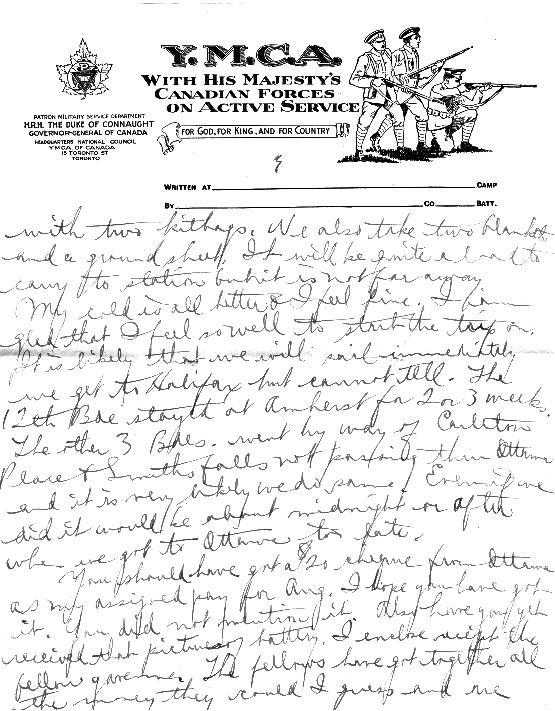 Y.M.C.A.
WITH HIS MAJESTY'S
CANADIAN FORCES
ON ACTIVE SERVICE
FOR GOD, FOR KING, AND FOR COUNTRY
PATRON MILITARY SERVICE DEPARTMENT
H.R.H. THE DUKE OF CONNAUGHT
GOVERNOR-GENERAL OF CANADA
HEADQUARTERS NATIONAL COUNCIL
Y.M.C.A. OF CANADA
15 TORONTO ST
TORONTO
WRITTEN AT CAMP
BY CO BATT.
with two kitbags. We also take two blankets
and a ground sheet. It will be quite a load to
carry to station but it is not far away
My cold is all better & I feel fine. I am
glad that I feel so well to start the trip on.
It is likely that we will sail immediately
we get to Halifax but cannot tell. The
12th Bde stayed at Amherst for 2 or 3 weeks.
The other 3 Bdes. went by way of Carleton
Place & Smiths falls not passing thru Ottawa
and it is very likely we do same. Even if we
did it would be about midnight or after
when we got to Ottawa to late.
You should have got a $20 cheque from Ottawa
as my assigned pay for Aug. I hope you have got
it. You did not mention it Also have you yet
received that picture of battery. I enclose reciept the
fellow gave me. The fellows have got together all
the money they could I guess and we